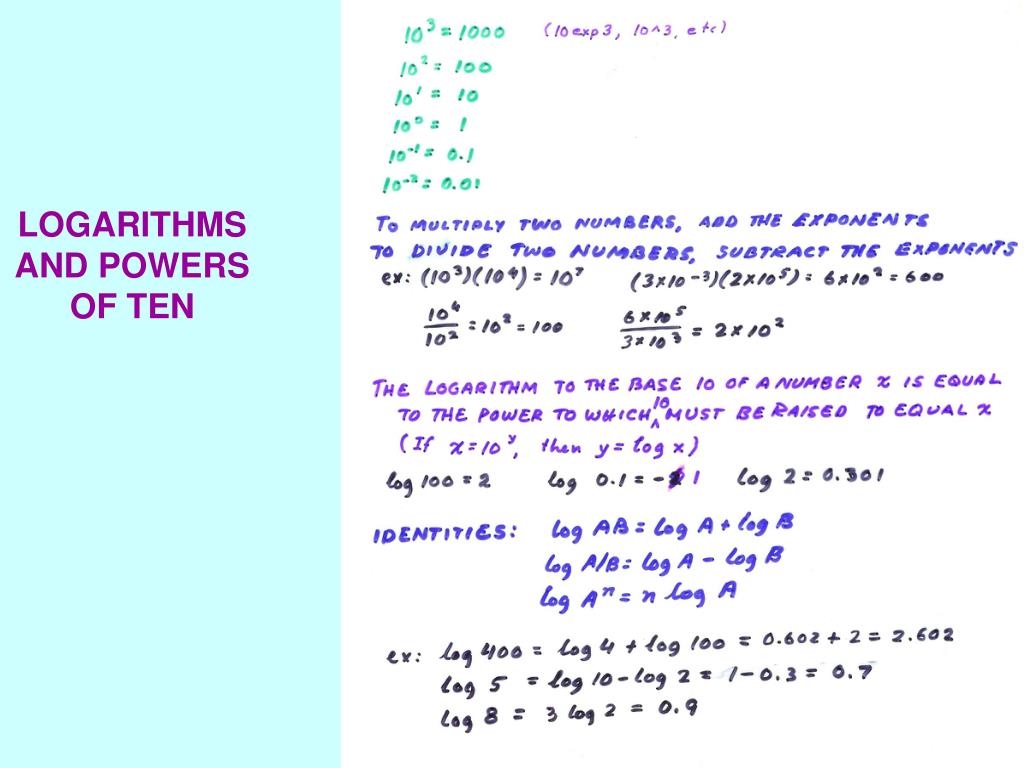 LOGARITHMS
AND POWERS
OF TEN
10³ = 1000 (10exp3, 10^3, etc)
10² = 100
10¹ = 10
10⁰ = 1
10⁻¹ = 0.1
10⁻² = 0.01
TO MULTIPLY TWO NUMBERS, ADD THE EXPONENTS
TO DIVIDE TWO NUMBERS, SUBTRACT THE EXPONENTS
ex: (10³)(10⁴) = 10⁷ (3x10⁻³)(2x10⁵) = 6x10² = 600
10⁴/10² = 10² = 100 6x10⁵/3x10³ = 2x10²
THE LOGARITHM TO THE BASE 10 OF A NUMBER x IS EQUAL
TO THE POWER TO WHICH 10 MUST BE RAISED TO EQUAL x
(If x = 10ʸ, then y = log x)
log 100 = 2 log 0.1 = -1 log 2 = 0.301
IDENTITIES: log AB = log A + log B
log A/B = log A - log B
log Aⁿ = n log A
ex: log 400 = log 4 + log 100 = 0.602 + 2 = 2.602
log 5 = log 10 - log 2 = 1 - 0.3 = 0.7
log 8 = 3 log 2 = 0.9